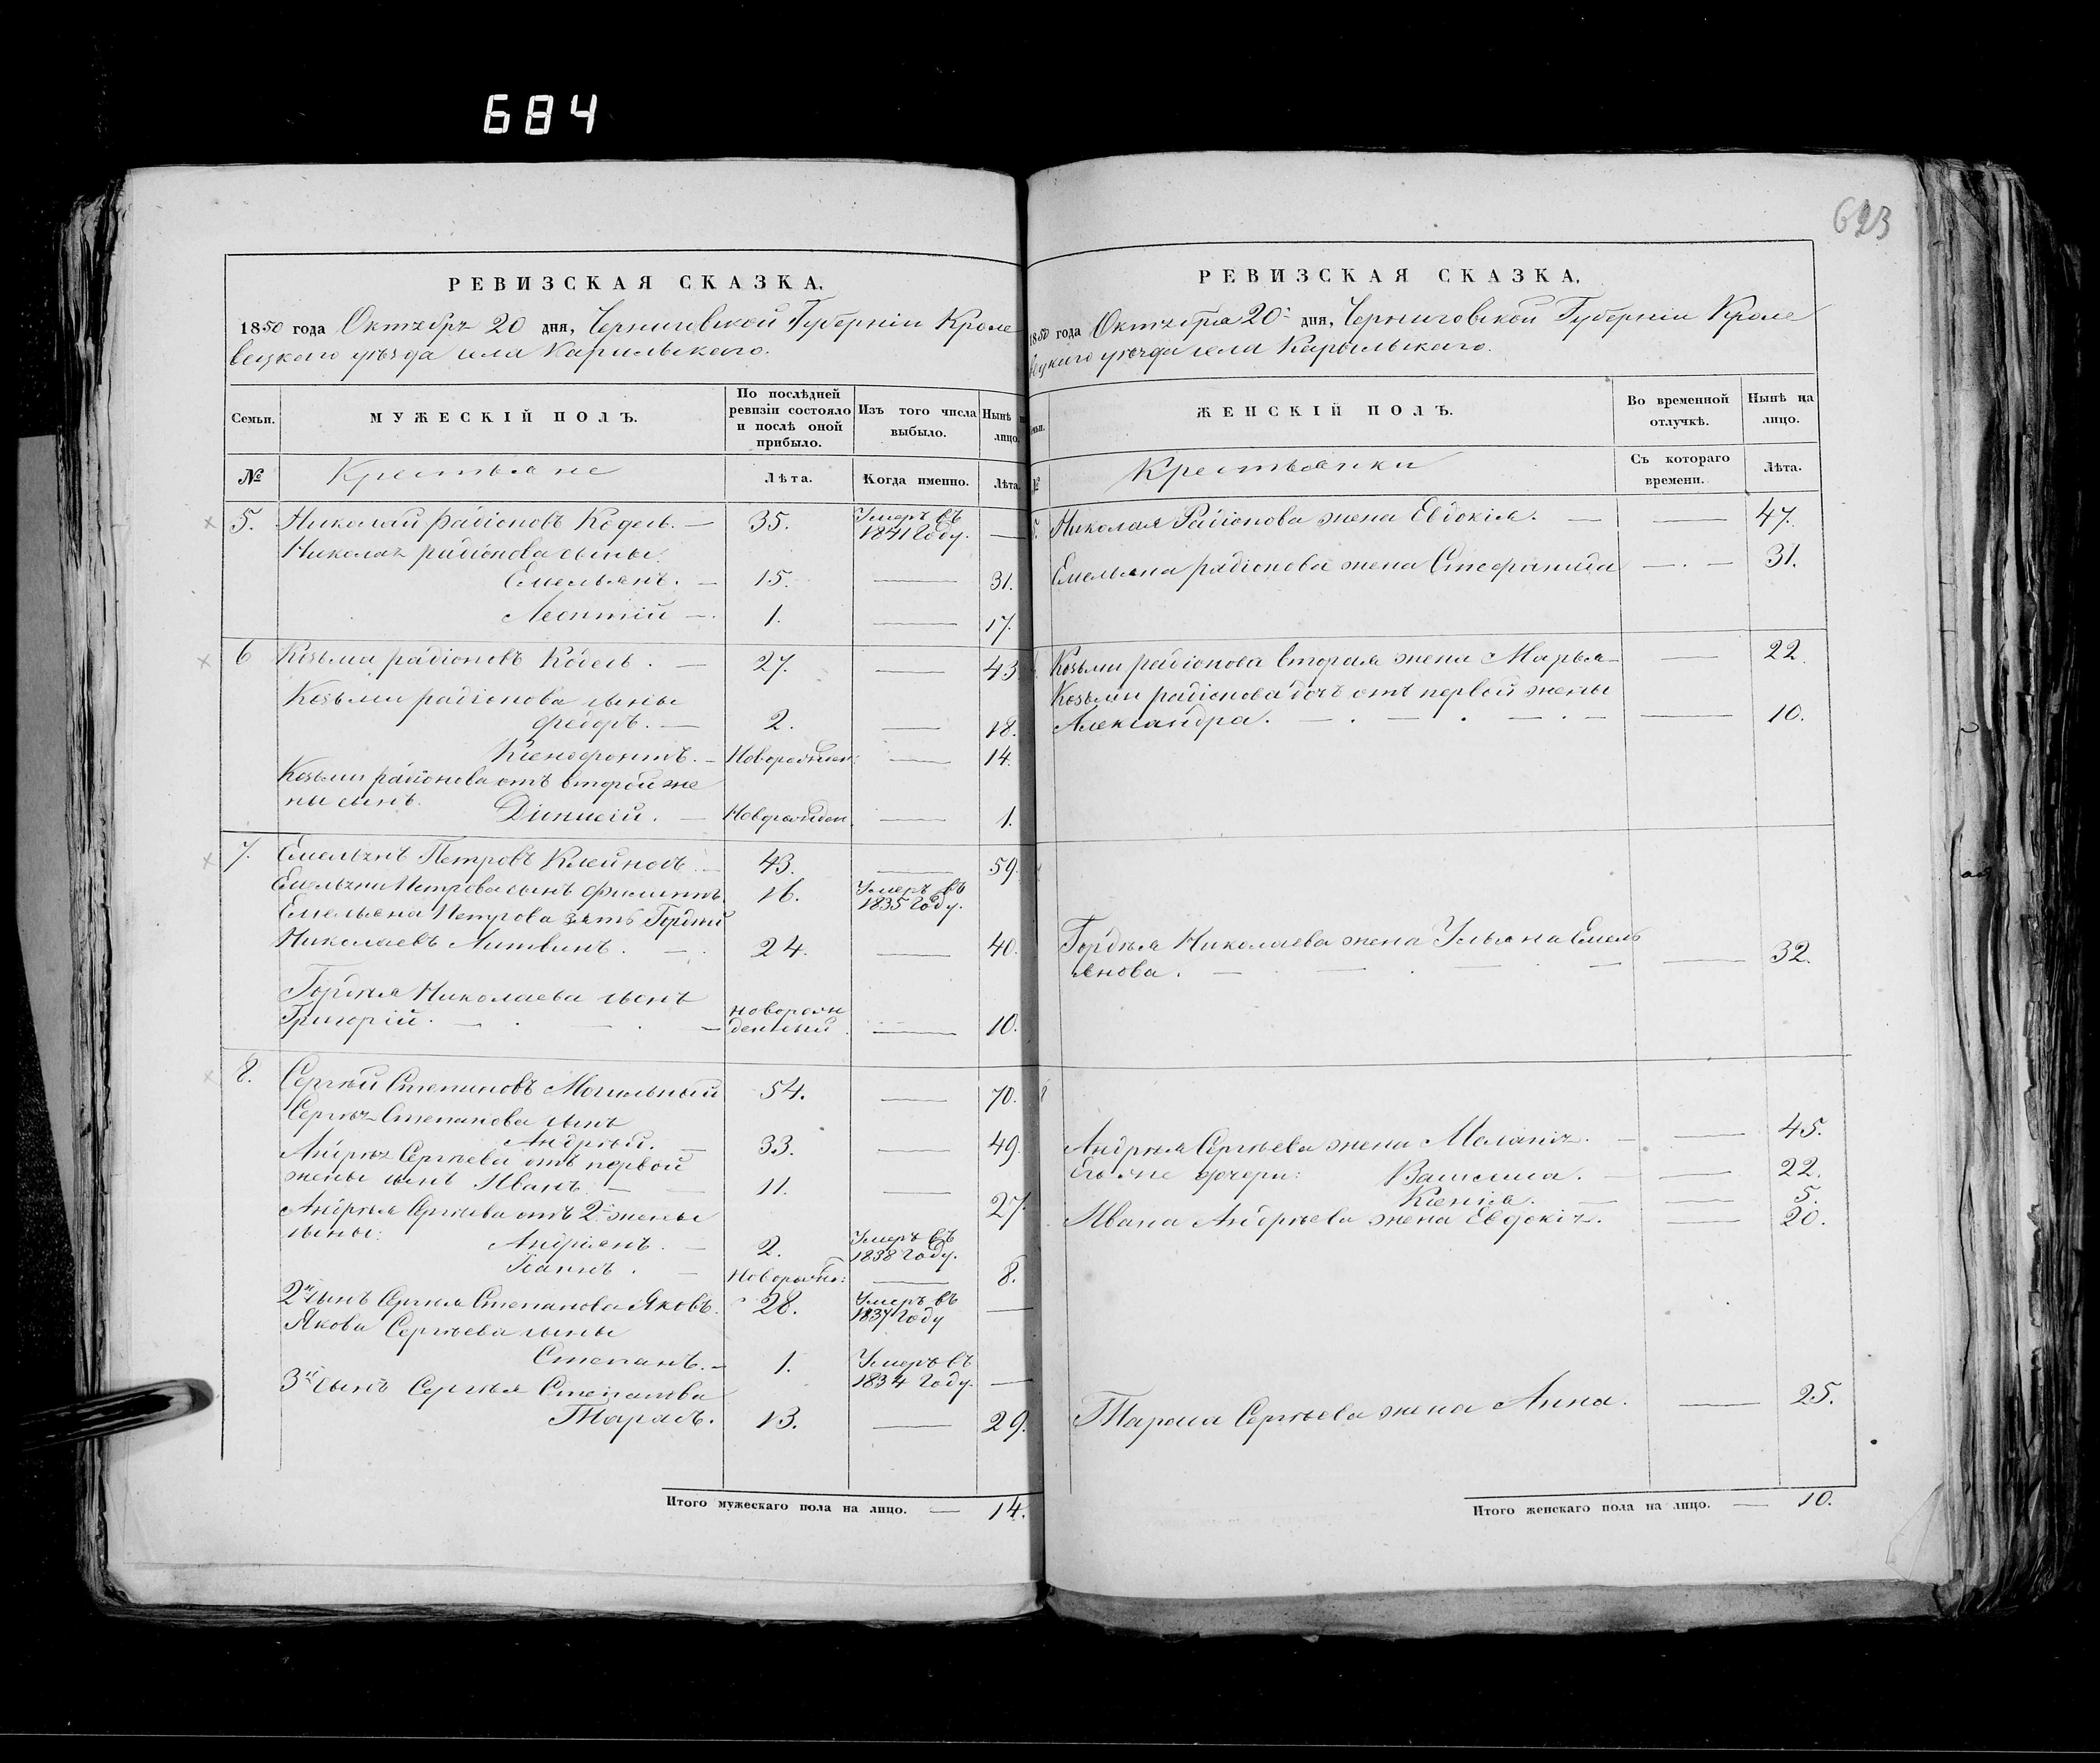 684
623
РЕВИЗСКАЯ СКАЗКА.
1850 года Октября 20 дня, Черниговской Губерніи Кроле
вецкаго уѣзда села Карильскаго.
Семьи.
МУЖЕСКІЙ ПОЛЪ.
По послѣдней
ревизіи состояло
и послѣ оной
прибыло.
Изъ того числа
выбыло.
Нынѣ
лицо.
№
Крестьяне
Лѣта.
Когда именно.
Лѣта.
5. Николай Радіоновъ Кодель. — 35. Умеръ въ
1841 Году. —
Николая радіонова сыны
Емельянъ. — 15. — 31.
Леонтій — 1. — 17.
6 Козьма радіоновъ Кодель. — 27. — 43
Козьми радіонова сыны
Федоръ. — 2. — 18.
Ксенофонтъ. — Новорожден: — 14.
Козьми радіонова отъ второй же
ны сынъ.
Діонисій. — Новорожден. — 1.
7. Емельянъ Петровъ Клейновъ. — 43. — 59.
Емельяна Петрова сынъ Филипъ. 16. Умеръ въ
1835 Году.
Емельяна Петрова зять Гордѣй
Николаевъ Литвинъ. — 24. — 40.
Гордѣя Николаева сынъ
Григорій. — новорож
денный — 10.
8. Сергѣй Степановъ Могильный 54. — 70.
Сергѣя Степанова сынъ
Андрѣй. — 33. — 49.
Андрѣя Сергѣева отъ первой
жены сынъ Иванъ. — 11. — 27.
Андрѣя Сергѣева отъ 2й жены
сыны:
Андріянъ. — 2. Умеръ въ
1838 Году.
Іоанъ. — Новорожд: — 8.
2й сынъ Сергѣя Степанова Яковъ. 28. Умеръ въ
1837 Году —
Якова Сергѣева сыны
Степанъ. — 1. Умеръ въ
1834 Году. —
3й сынъ Сергѣя Степанова
Тарасъ. 13. — 29.
Итого мужескаго пола на лицо. — 14.
РЕВИЗСКАЯ СКАЗКА.
1850 года Октября 20 дня, Черниговской Губерніи Кроле
вецкаго уѣзда села Карыльскаго.
ЖЕНСКІЙ ПОЛЪ.
Во временной
отлучкѣ.
Нынѣ на
лицо.
№
Крестьянки
Съ котораго
времени.
Лѣта.
5. Николая Радіонова жена Евдокія. — 47.
Емельяна радіонова жена Стефанида — 31.
Козьми радіонова вторая жена Марья — 22.
Козьми радіонова дочь отъ первой жены
Александра. — 10.
Гордѣя Николаева жена Ульяна Емель
янова. — 32.
8
Андрѣя Сергѣева жена Маланія. — 45.
Его же дочери: Василиса. — 22.
Ксенія. — 5.
Ивана Андрѣева жена Евдокія. — 20.
Тараса Сергѣева жена Анна. — 25.
Итого женскаго пола на лицо. — 10.